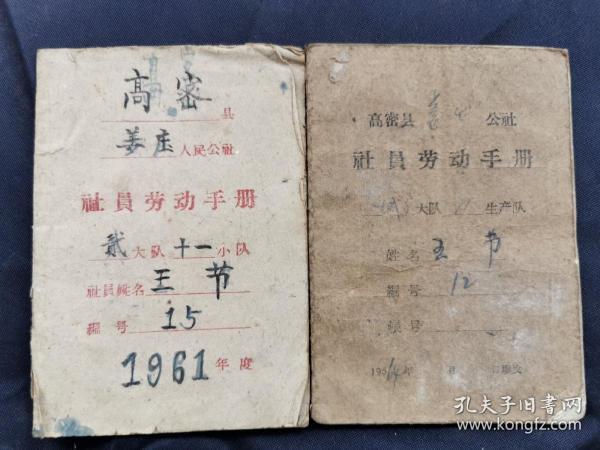 高密县
姜庄人民公社
社员劳动手册
贰大队十一小队
社员姓名王节
编号15
1961年度
高密县 公社
社员劳动手册
大队 生产队
姓名王节
编号12
号
1964年
孔夫子旧书网
www.kongfz.com